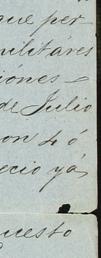 que per
militáres
ciónes
de Julio
con 4 ó
ecio yá
uesto